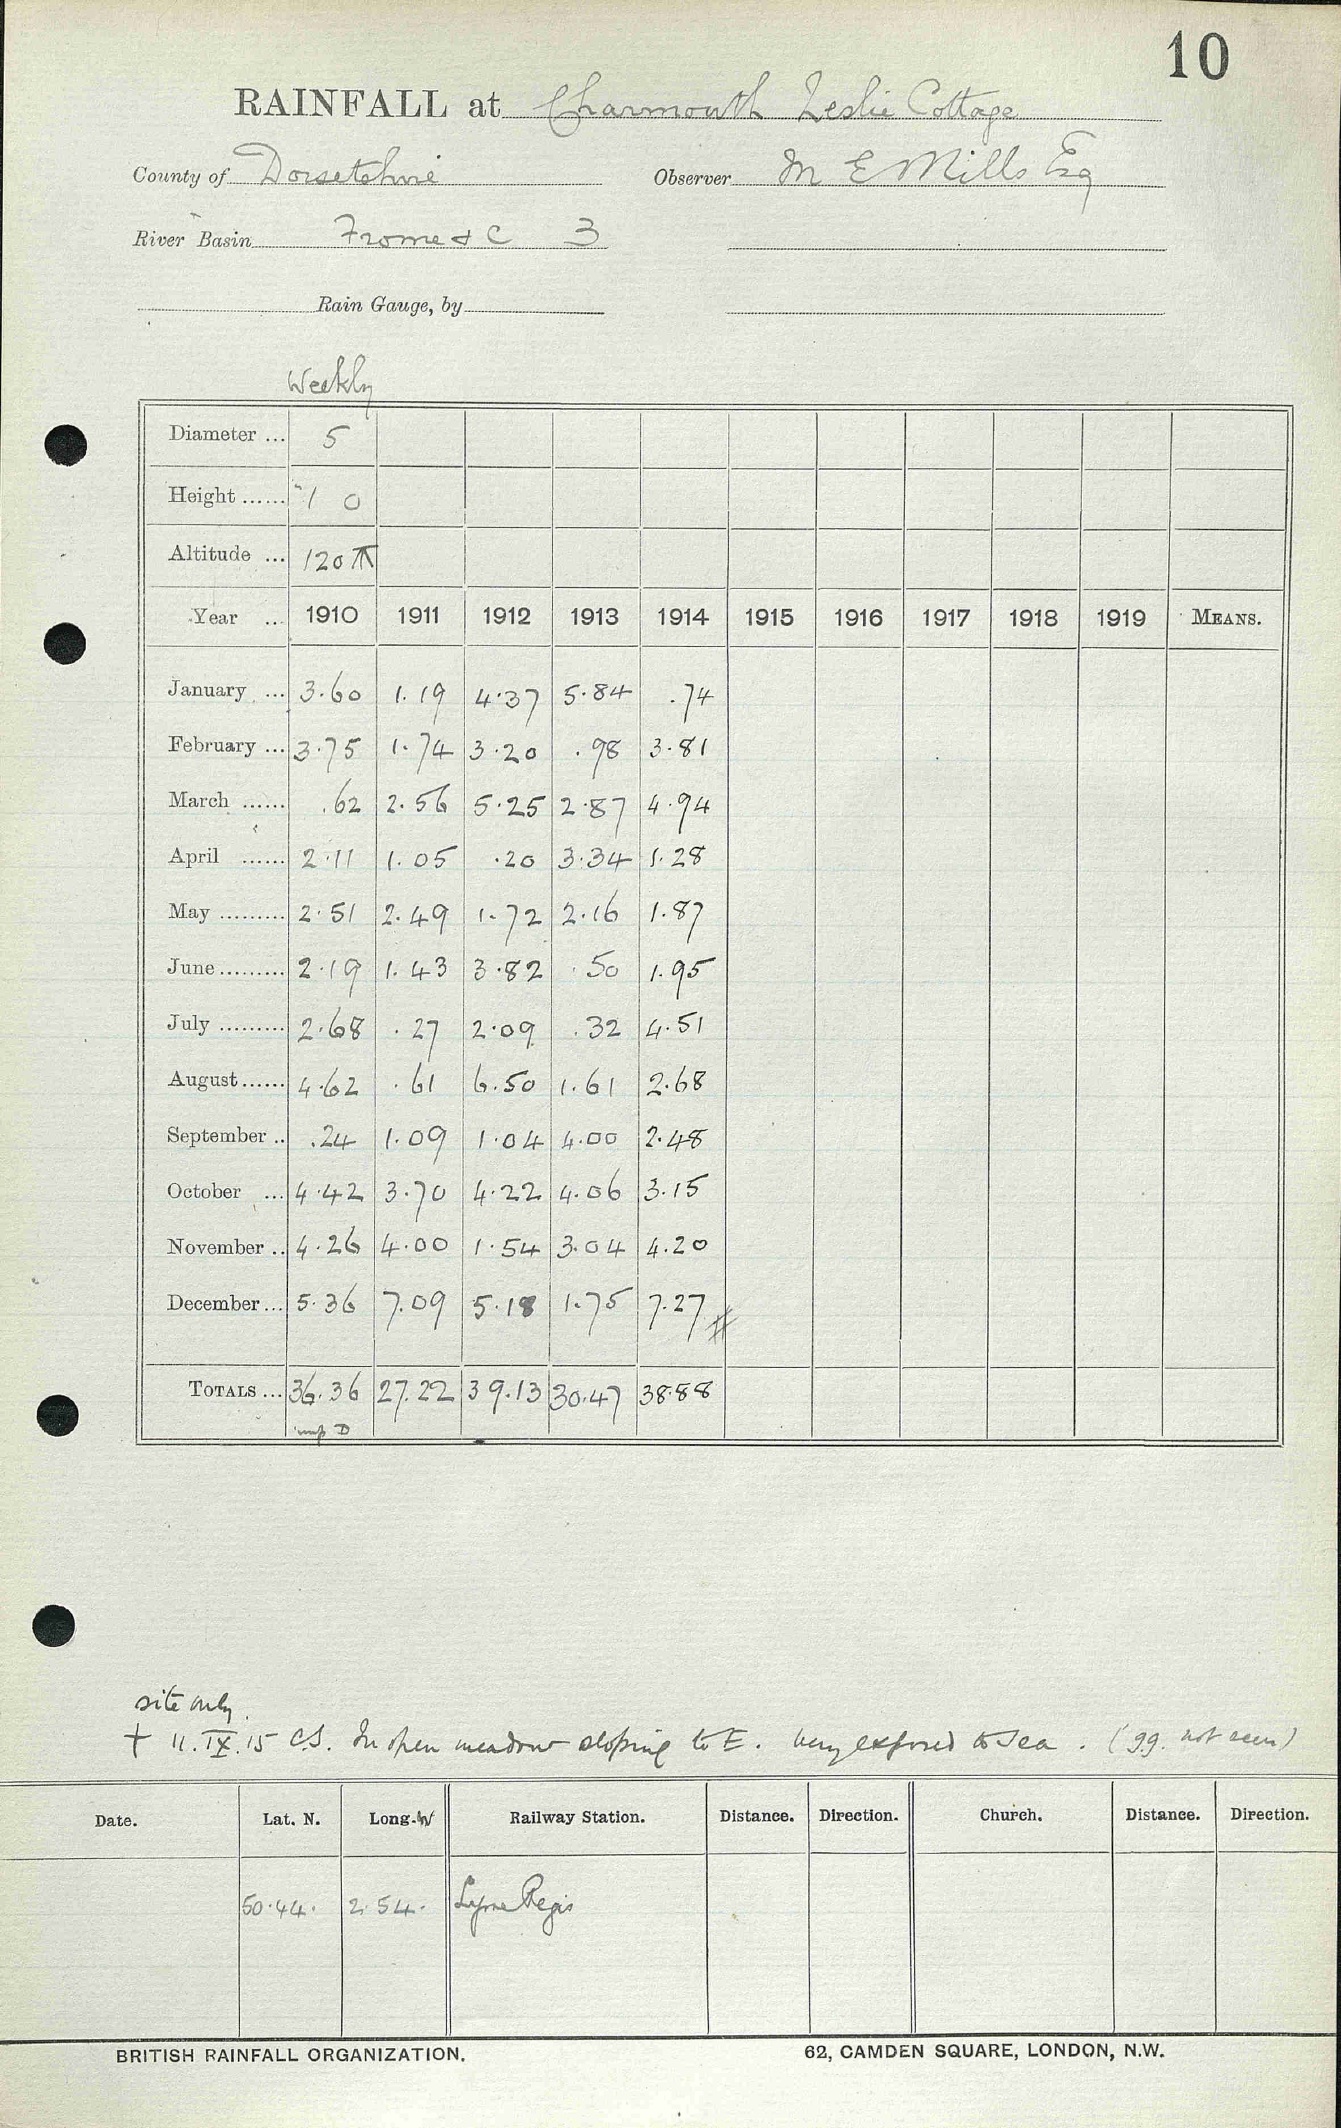 10
RAINFALL at Charmouth Leslie Cottage
County of Dorsetshire Observer M E Mills Esq
River Basin Frome &c 3
Rain Gauge, by
Weekly
Diameter ... 5
Height ...... 1 0
Altitude ... 120
Year ... 1910 1911 1912 1913 1914 1915 1916 1917 1918 1919 MEANS.
January ... 3.60 1.19 4.37 5.84 .74
February ... 3.75 1.74 3.20 .98 3.81
March ...... .62 2.56 5.25 2.87 4.94
April ...... 2.11 1.05 .20 3.34 1.28
May ......... 2.51 2.49 1.72 2.16 1.87
June ......... 2.19 1.43 3.82 .50 1.95
July ......... 2.68 .27 2.09 .32 4.51
August ...... 4.62 .61 6.50 1.61 2.68
September .. .24 1.09 1.04 4.00 2.48
October ... 4.42 3.70 4.22 4.06 3.15
November .. 4.26 4.00 1.54 3.04 4.20
December ... 5.36 7.09 5.18 1.75 7.27 #
TOTALS ... 36.36 27.22 39.13 30.47 38.88
site only.
† 11.IX.15 CS. In open meadow sloping to E. very exposed to sea. (gg. not seen)
Date. Lat. N. Long. W Railway Station. Distance. Direction. Church. Distance. Direction.
50.44. 2.54. Lyme Regis
BRITISH RAINFALL ORGANIZATION. 62, CAMDEN SQUARE, LONDON, N.W.